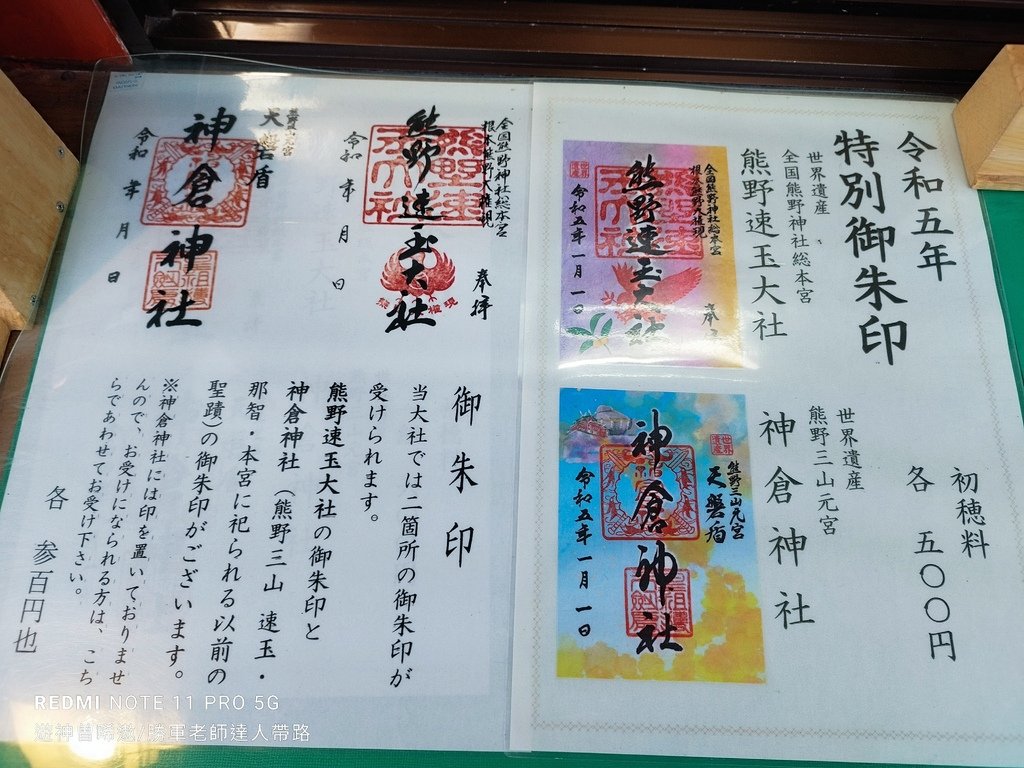 令和五年
特別御朱印
世界遺産
全国熊野神社総本宮
熊野速玉大社
全国熊野神社総本宮
根本熊野大権現
熊野速玉大社
令和五年一月一日
初穂料
各 五〇〇円
世界遺産
熊野三山元宮
神倉神社
世界遺産
熊野三山元宮
天磐盾
神倉神社
令和五年一月一日
全国熊野神社総本宮
根本熊野大権現
奉拝
熊野速玉大社
令和 年 月 日
天磐盾
神倉神社
令和 年 月 日
御朱印
当大社では二箇所の御朱印が
受けられます。
熊野速玉大社の御朱印と
神倉神社（熊野三山 速玉・
那智・本宮に祀られる以前の
聖蹟)の御朱印がございます。
※神倉神社には印を置いておりませ
んので、お受けになられる方は、こち
らであわせてお受け下さい。
各 参百円也
REDMI NOTE 11 PRO 5G
遊神曾勝滋/勝軍老師達人帶路